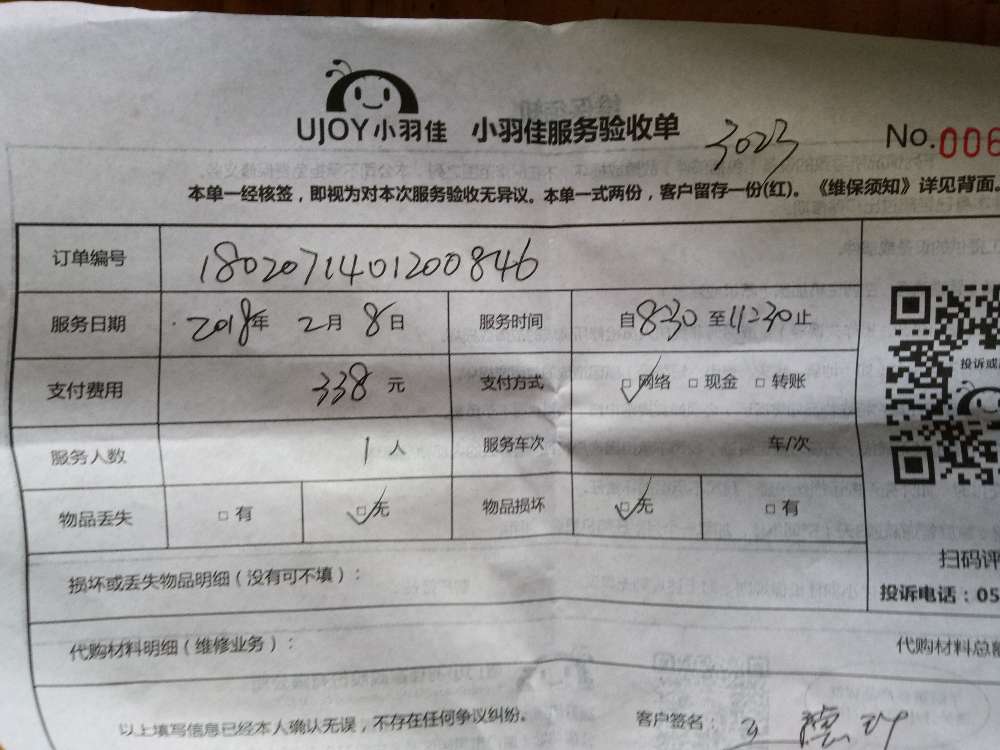 UJOY小羽佳 小羽佳服务验收单 3023 No.006
本单一经核签，即视为对本次服务验收无异议。本单一式两份，客户留存一份(红)。《维保须知》详见背面。
订单编号 1802071401200846
服务日期 2018年 2月 8日 服务时间 自8:30 至11:30止
支付费用 338 元 支付方式 □网络 □现金 □转账
投诉或
服务人数 1 人 服务车次 车/次
物品丢失 □有 □无 物品损坏 □无 □有
扫码评
损坏或丢失物品明细（没有可不填）：
投诉电话：05
代购材料明细（维修业务）： 代购材料总额
以上填写信息已经本人确认无误，不存在任何争议纠纷。 客户签名：